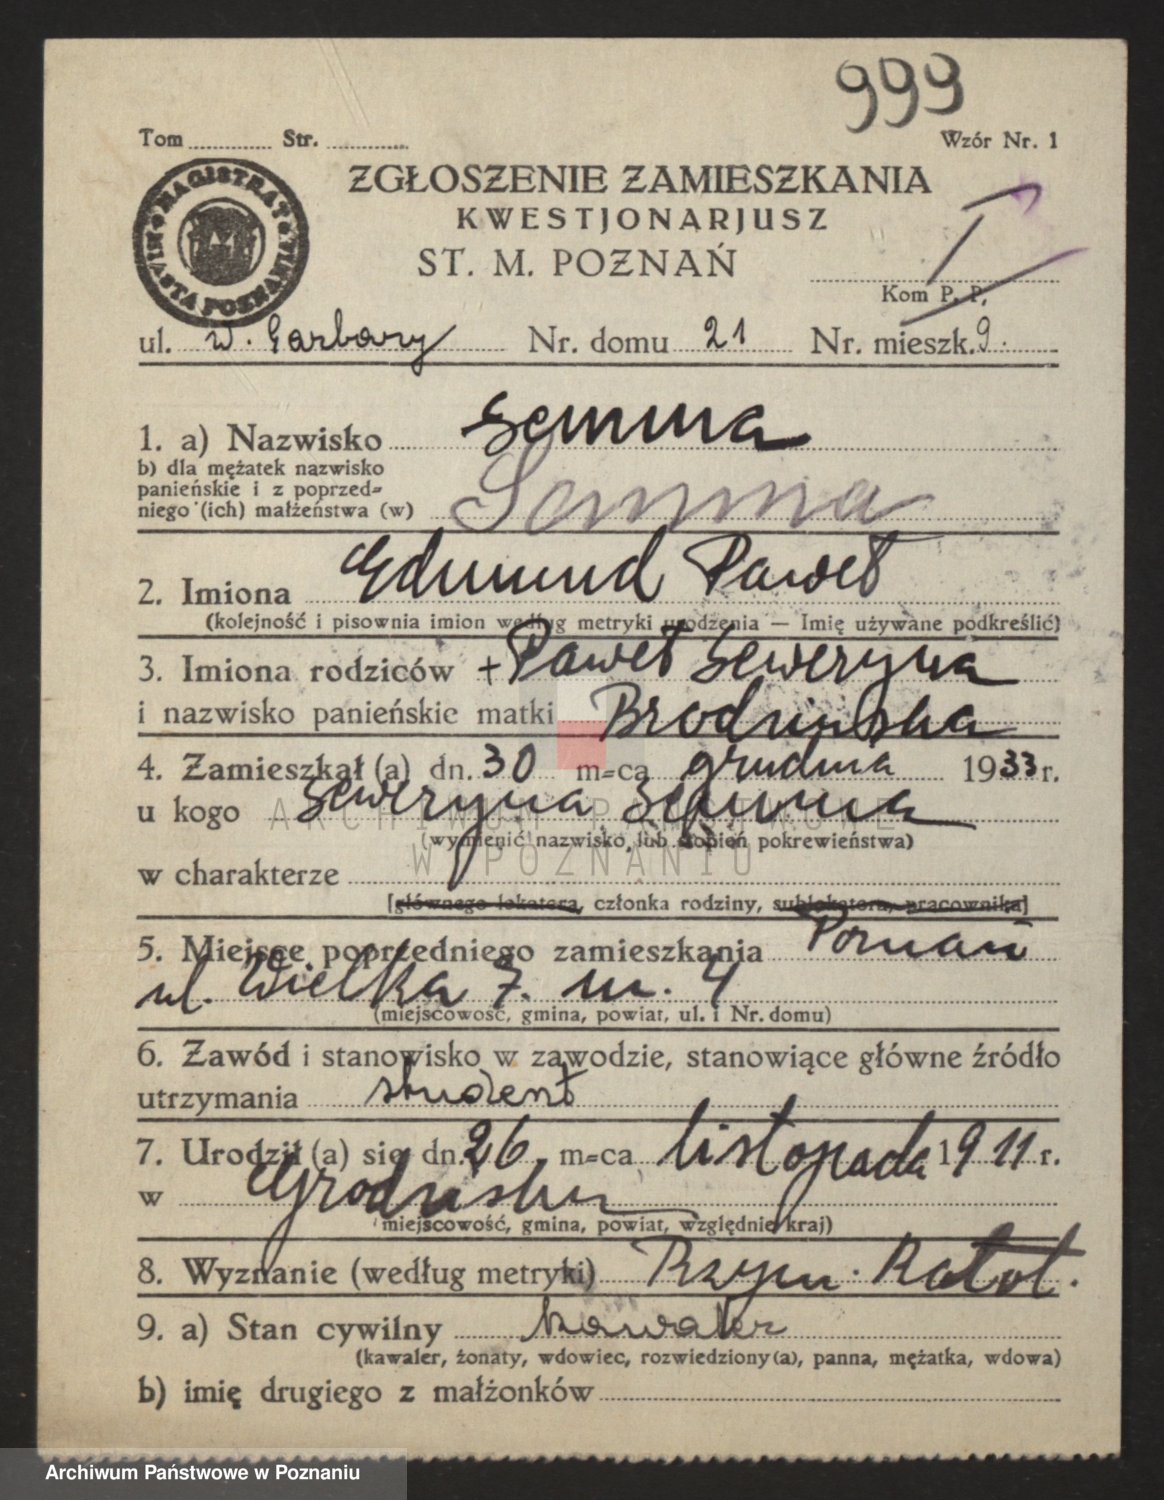 999
Tom ............ Str. ............ Wzór Nr. 1
MAGISTRAT MIASTA POZNANIA
ZGŁOSZENIE ZAMIESZKANIA
KWESTJONARJUSZ
ST. M. POZNAŃ
I
Kom P. P.
ul. W. Garbary Nr. domu 21 Nr. mieszk. 9.
1. a) Nazwisko Semma
b) dla mężatek nazwisko
panieńskie i z poprzed=
niego (ich) małżeństwa (w) Semma
2. Imiona Edmund Paweł
(kolejność i pisownia imion według metryki urodzenia — Imię używane podkreślić)
3. Imiona rodziców + Paweł Seweryna
i nazwisko panieńskie matki Brodzińska
4. Zamieszkał (a) dn. 30 m=ca grudnia 1933 r.
u kogo Seweryna Semma
(wymienić nazwisko, lub stopień pokrewieństwa)
w charakterze
[głównego lokatora, członka rodziny, sublokatora, pracownika]
5. Miejsce poprzedniego zamieszkania Poznań
ul. Wielka 7. m. 4
(miejscowość, gmina, powiat, ul. i Nr. domu)
6. Zawód i stanowisko w zawodzie, stanowiące główne źródło
utrzymania student
7. Urodził (a) się dn. 26 m=ca listopada 1911 r.
w Grodzisku
(miejscowość, gmina, powiat, względnie kraj)
8. Wyznanie (według metryki) Rzym. Katol.
9. a) Stan cywilny kawaler
(kawaler, żonaty, wdowiec, rozwiedziony(a), panna, mężatka, wdowa)
b) imię drugiego z małżonków
ARCHIWUM PAŃSTWOWE
W POZNANIU
Archiwum Państwowe w Poznaniu